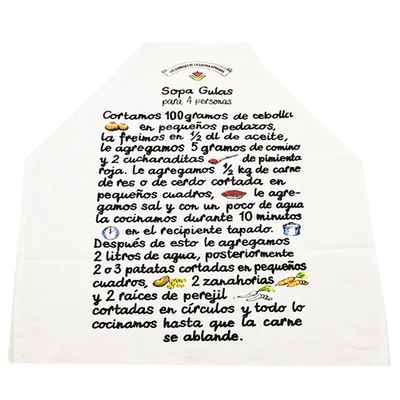 LOS COMIDAS DE LA COCINA HÚNGARA
Sopa Gulas
para 4 personas
Cortamos 100 gramos de cebolla
en pequeños pedazos,
la freimos en ½ dl de aceite,
le agregamos 5 gramos de comino
y 2 cucharaditas de pimienta
roja. Le agregamos ½ kg de carne
de res o de cerdo cortada en
pequeños cuadros, le agre-
gamos sal y con un poco de agua
la cocinamos durante 10 minutos
en el recipiente tapado.
Después de esto le agregamos
2 litros de agua, posteriormente
2 o 3 patatas cortadas en pequeños
cuadros, 2 zanahorias
y 2 raíces de perejil
cortadas en círculos y todo lo
cocinamos hasta que la carne
se ablande.